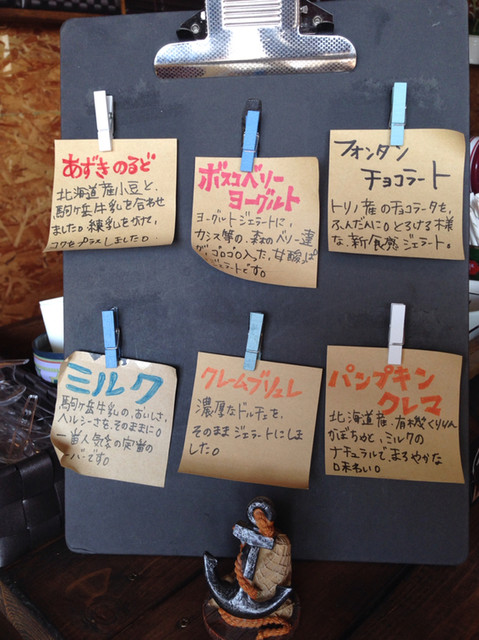 あずきのるど
北海道産小豆と、
駒ヶ岳牛乳を合わせ
ました。練乳をかけて、
コクをプラスしました。
ボスコベリー
ヨーグルト
ヨーグルトジェラートに、
カシス等の、森のベリー達
が、ゴロゴロ入った、甘酸っぱ
ジェラートです。
フォンダン
チョコラート
トリノ産のチョコラータを、
ふんだんに。とろける様
な、新食感ジェラート。
ミルク
駒ヶ岳牛乳の、おいしさ、
ヘルシーさを、そのままに。
一番人気の定番の
バーです。
クレームブリュレ
濃厚なドルチェを、
そのままジェラートにしま
した。
パンプキン
クレマ
北海道産、有機くりりん
かぼちゃと、ミルクの
ナチュラルで、まろやかな
味わい。